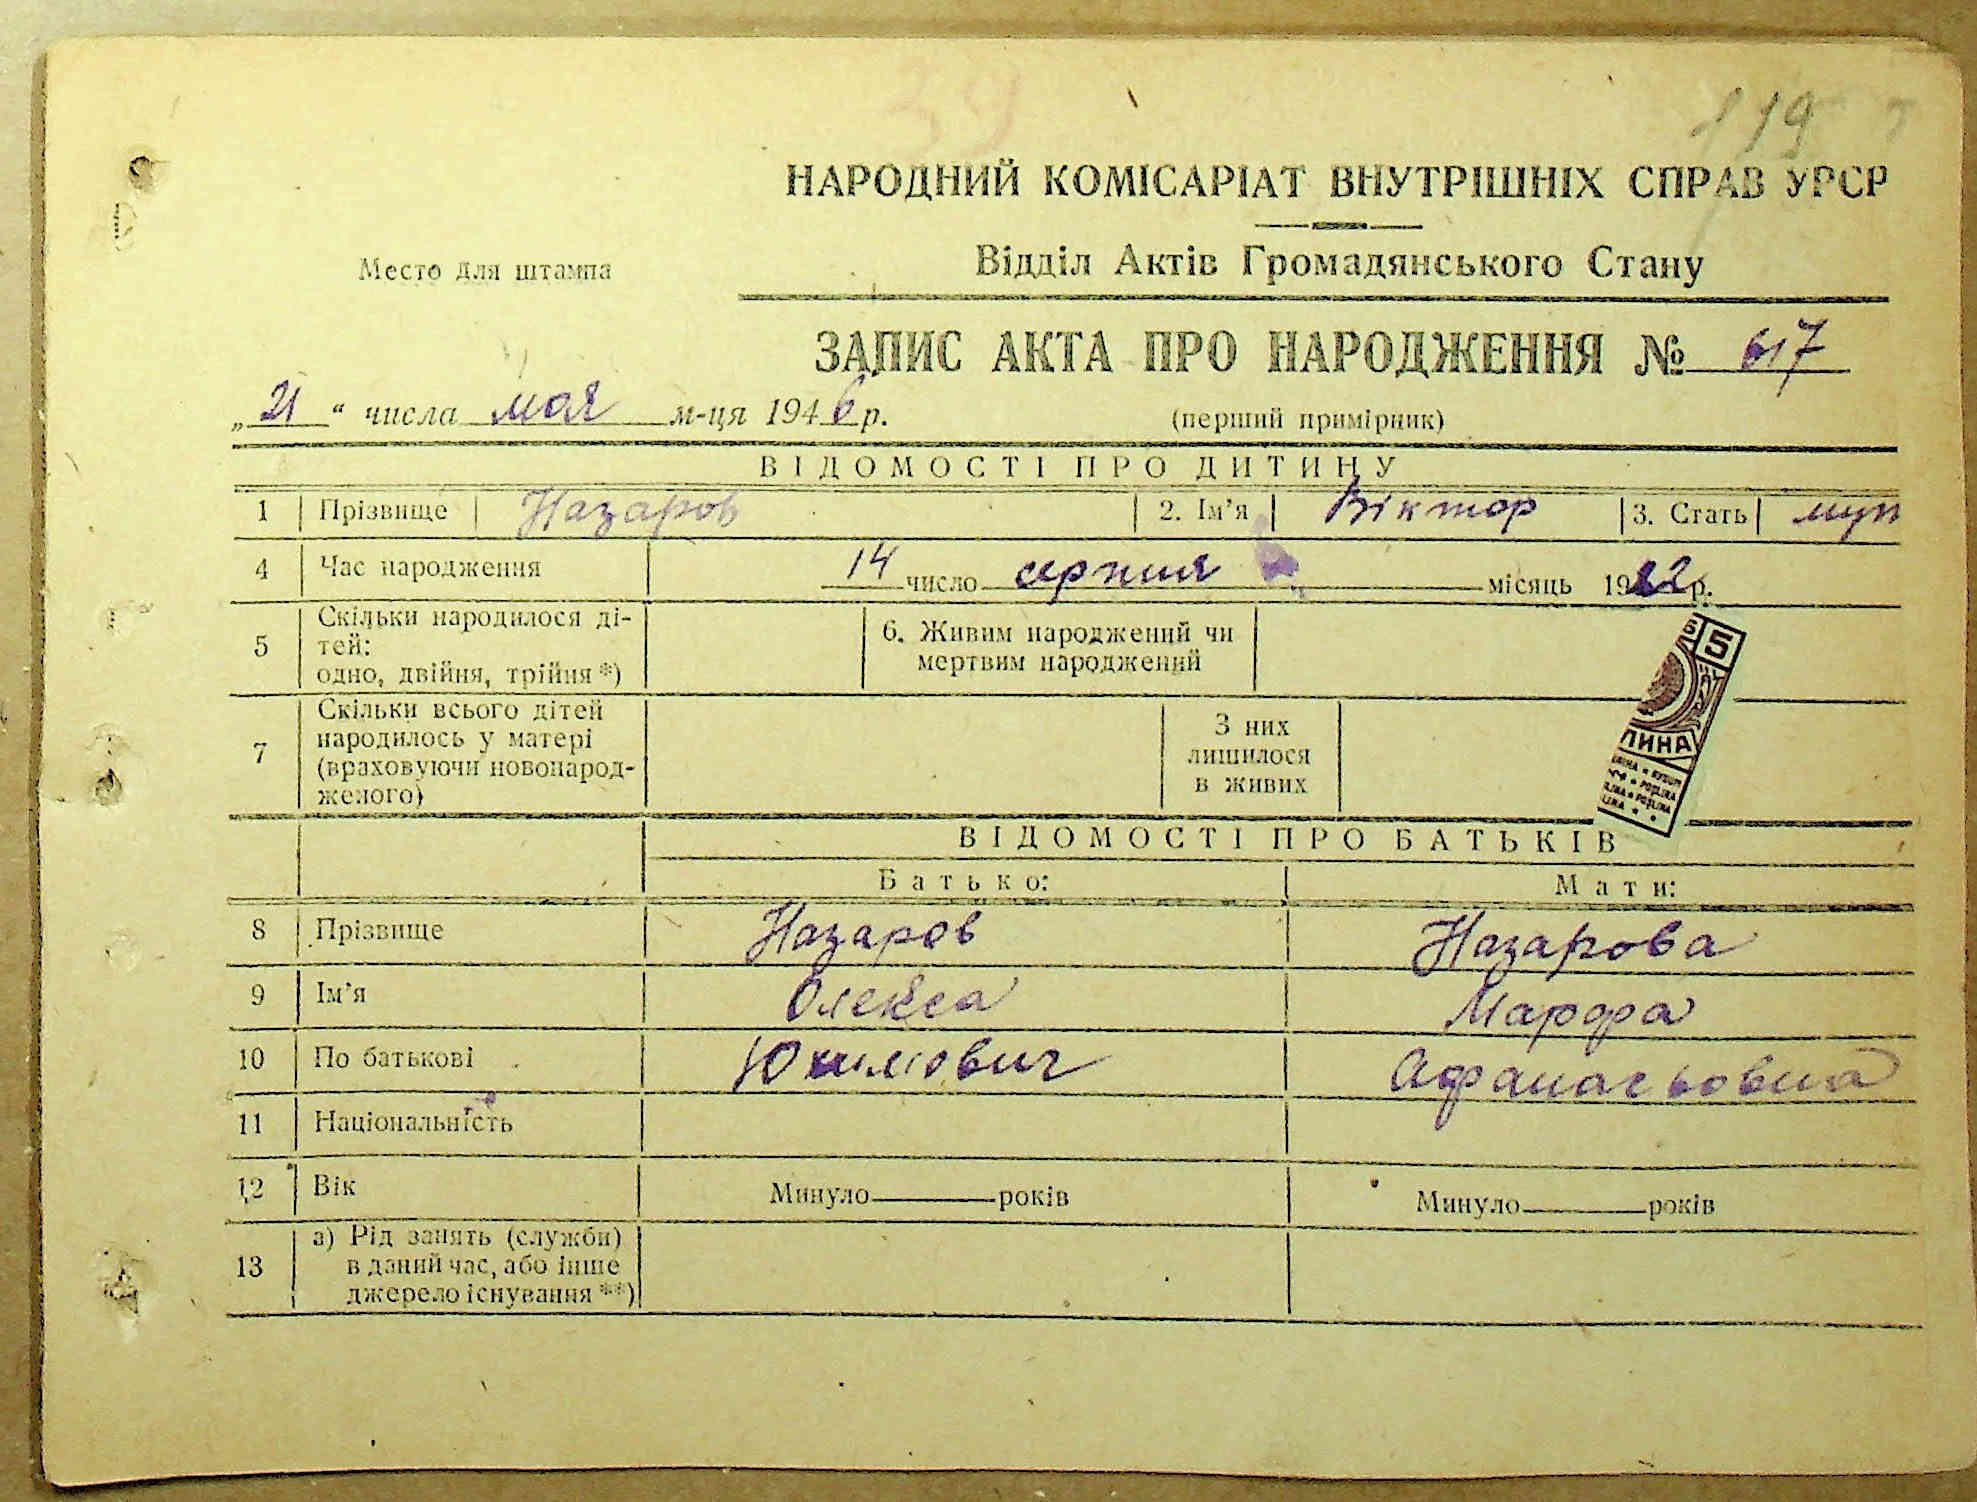 39
119
НАРОДНИЙ КОМІСАРІАТ ВНУТРІШНІХ СПРАВ УРСР
Место для штампа
Відділ Актів Громадянського Стану
ЗАПИС АКТА ПРО НАРОДЖЕННЯ № 617
„21“ числа мая м-ця 1946 р.
(перший примірник)
ВІДОМОСТІ ПРО ДИТИНУ
1 Прізвище Назаров 2. Ім’я Віктор 3. Стать муж
4 Час народження 14 число серпня місяць 1922 р.
5 Скільки народилося ді-
тей:
одно, двійня, трійня *)
6. Живим народжений чи
мертвим народжений
7 Скільки всього дітей
народилось у матері
(враховуючи новонарод-
женого)
З них
лишилося
в живих
5
ЛИНА
ВІДОМОСТІ ПРО БАТЬКІВ
Батько: Мати:
8 Прізвище Назаров Назарова
9 Ім’я Олекса Марфа
10 По батькові Юхимович Афанасьовна
11 Національність
12 Вік Минуло роках Минуло років
13 а) Рід занять (служби)
в даний час, або інше
джерело існування **)